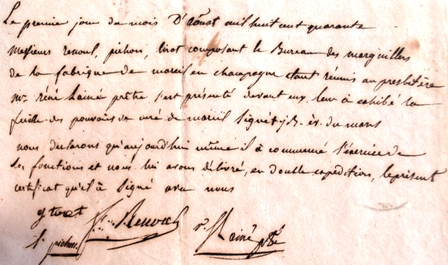 Le premier jour du mois D'Aoust mil huit cent quarante
Messieurs renoul, pichon, triot composant le Bureau des marguilliers
de la fabrique de mareil en champagne etant reunis au presbitère
Mr réné hainé prêtre s'est présenté devant eux, leur à exhibé la
feuille des pouvoirs de curé de mareil signét j.B. év. du mans
nous declarons qu'aujourd'hui même il à commencé l'exercice de
ses fonctions et nous lui avons délivré, en double expédition, le présent
certificat qu'il à signé avec nous
renoul
f. pichon
r. hainé ptre